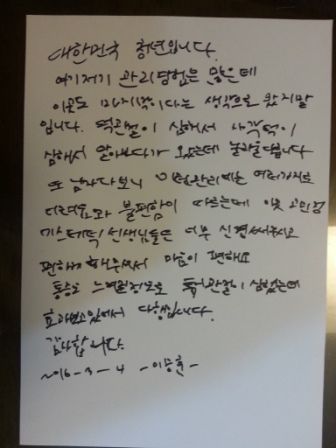 대한민국 청년입니다.
여기저기 관리경험은 많은데
이곳도 마지막이다는 생각으로 왔지말
입니다. 턱관절이 심해서 사각턱이
심해서 알아보다가 왔는데 놀라울뿐입니다
또 남자다보니 이런관리에는 여러가지로
불편함이 따르는데 이곳
선생님들은 너무 신경써주시고
편하게 해주셔서 마음이 편해요
통증도 느낄정도로 턱관절이 심했는데
효과보고있어서 다행입니다.
감사합니다.
2016-3-4 -이승훈-